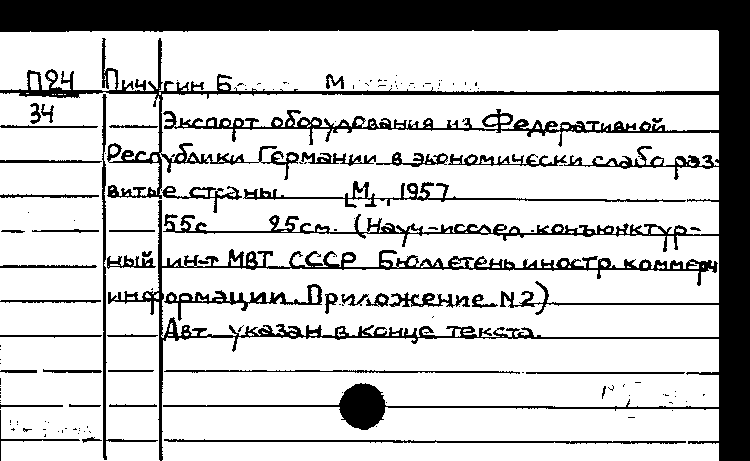 П24 Пичугин, Б М
34 Экспорт оборудования из Федеративной
Республики Германии в экономически слабо раз-
витые страны. [М], 1957.
55с 25см. (Науч-исслед. конъюнктур-
ный ин-т МВТ СССР Бюллетень иностр. коммерч
информации. Приложение N2)
Авт. указан в конце текста.